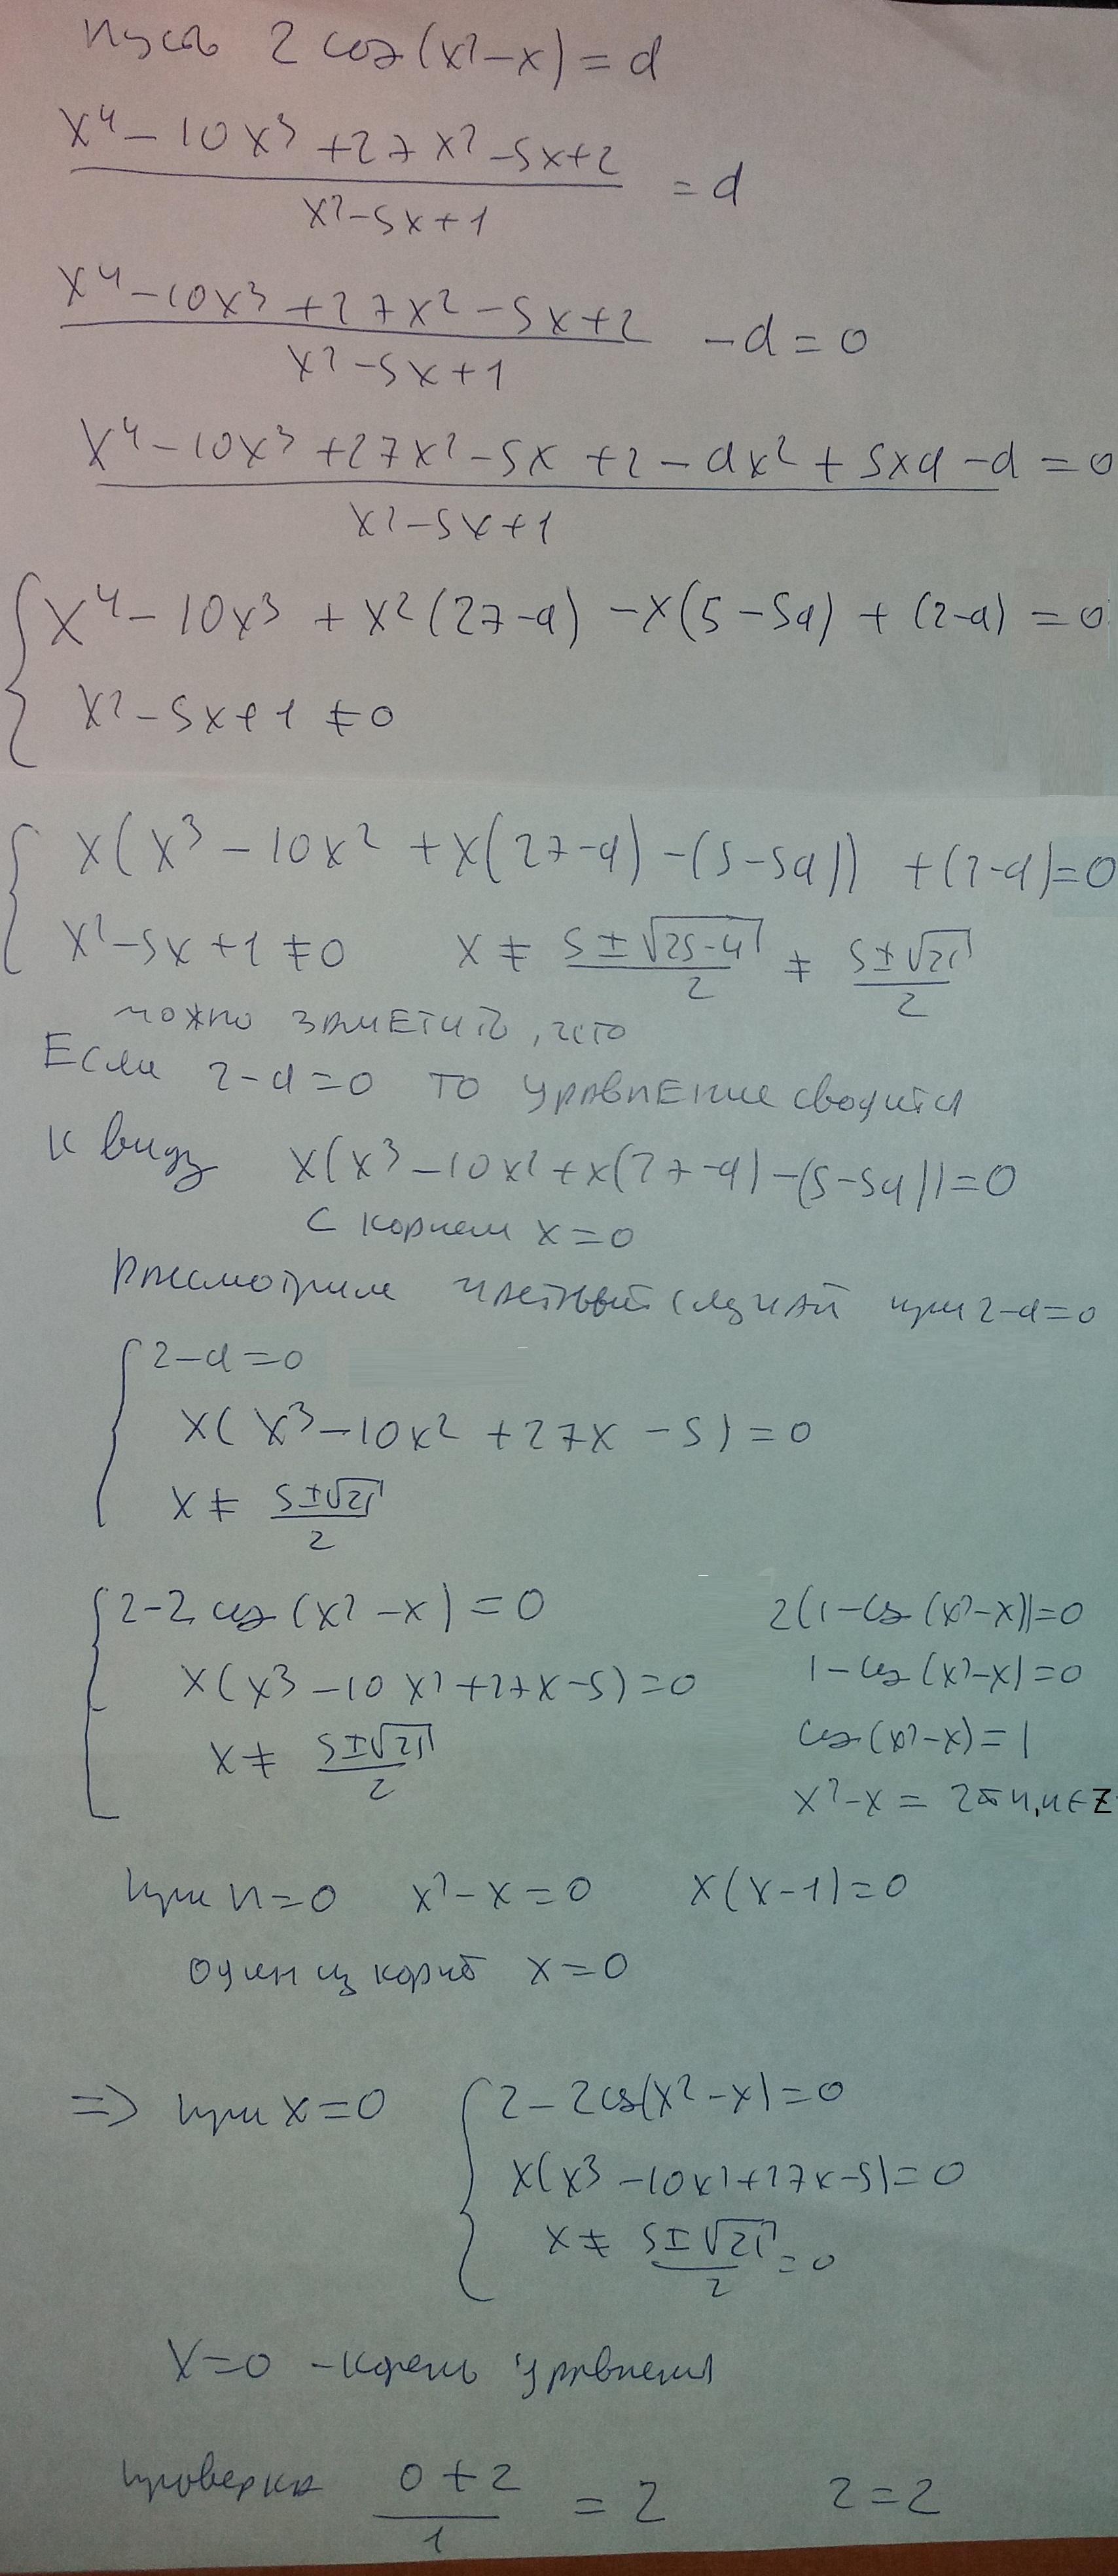 Пусть 2 cos(x²-x) = d
x⁴ - 10x³ + 27x² - 5x + 2 / x² - 5x + 1 = d
x⁴ - 10x³ + 27x² - 5x + 2 / x² - 5x + 1 - d = 0
x⁴ - 10x³ + 27x² - 5x + 2 - dx² + 5xd - d / x² - 5x + 1 = 0
{ x⁴ - 10x³ + x²(27-d) - x(5-5d) + (2-d) = 0
x² - 5x + 1 ≠ 0
{ x(x³ - 10x² + x(27-d) - (5-5d)) + (2-d) = 0
x² - 5x + 1 ≠ 0 x ≠ 5 ± √25-4 / 2 ≠ 5 ± √21 / 2
можно заметить, что
Если 2-d=0 то уравнение сводится
к виду x(x³ - 10x² + x(27-d) - (5-5d)) = 0
с корнем x=0
Рассмотрим частный случай при 2-d=0
{ 2-d=0
x(x³ - 10x² + 27x - 5) = 0
x ≠ 5 ± √21 / 2
{ 2 - 2 cos(x² - x) = 0 2(1 - cos(x²-x)) = 0
x(x³ - 10x² + 27x - 5) = 0 1 - cos(x²-x) = 0
x ≠ 5 ± √21 / 2 cos(x²-x) = 1
x² - x = 2πn, n ∈ Z
при n=0 x² - x = 0 x(x-1) = 0
один из корней x=0
=> при x=0 { 2 - 2cos(x²-x) = 0
x(x³ - 10x² + 27x - 5) = 0
x ≠ 5 ± √21 / 2 = 0
x=0 - корень уравнения
проверка 0+2 / 1 = 2 2=2